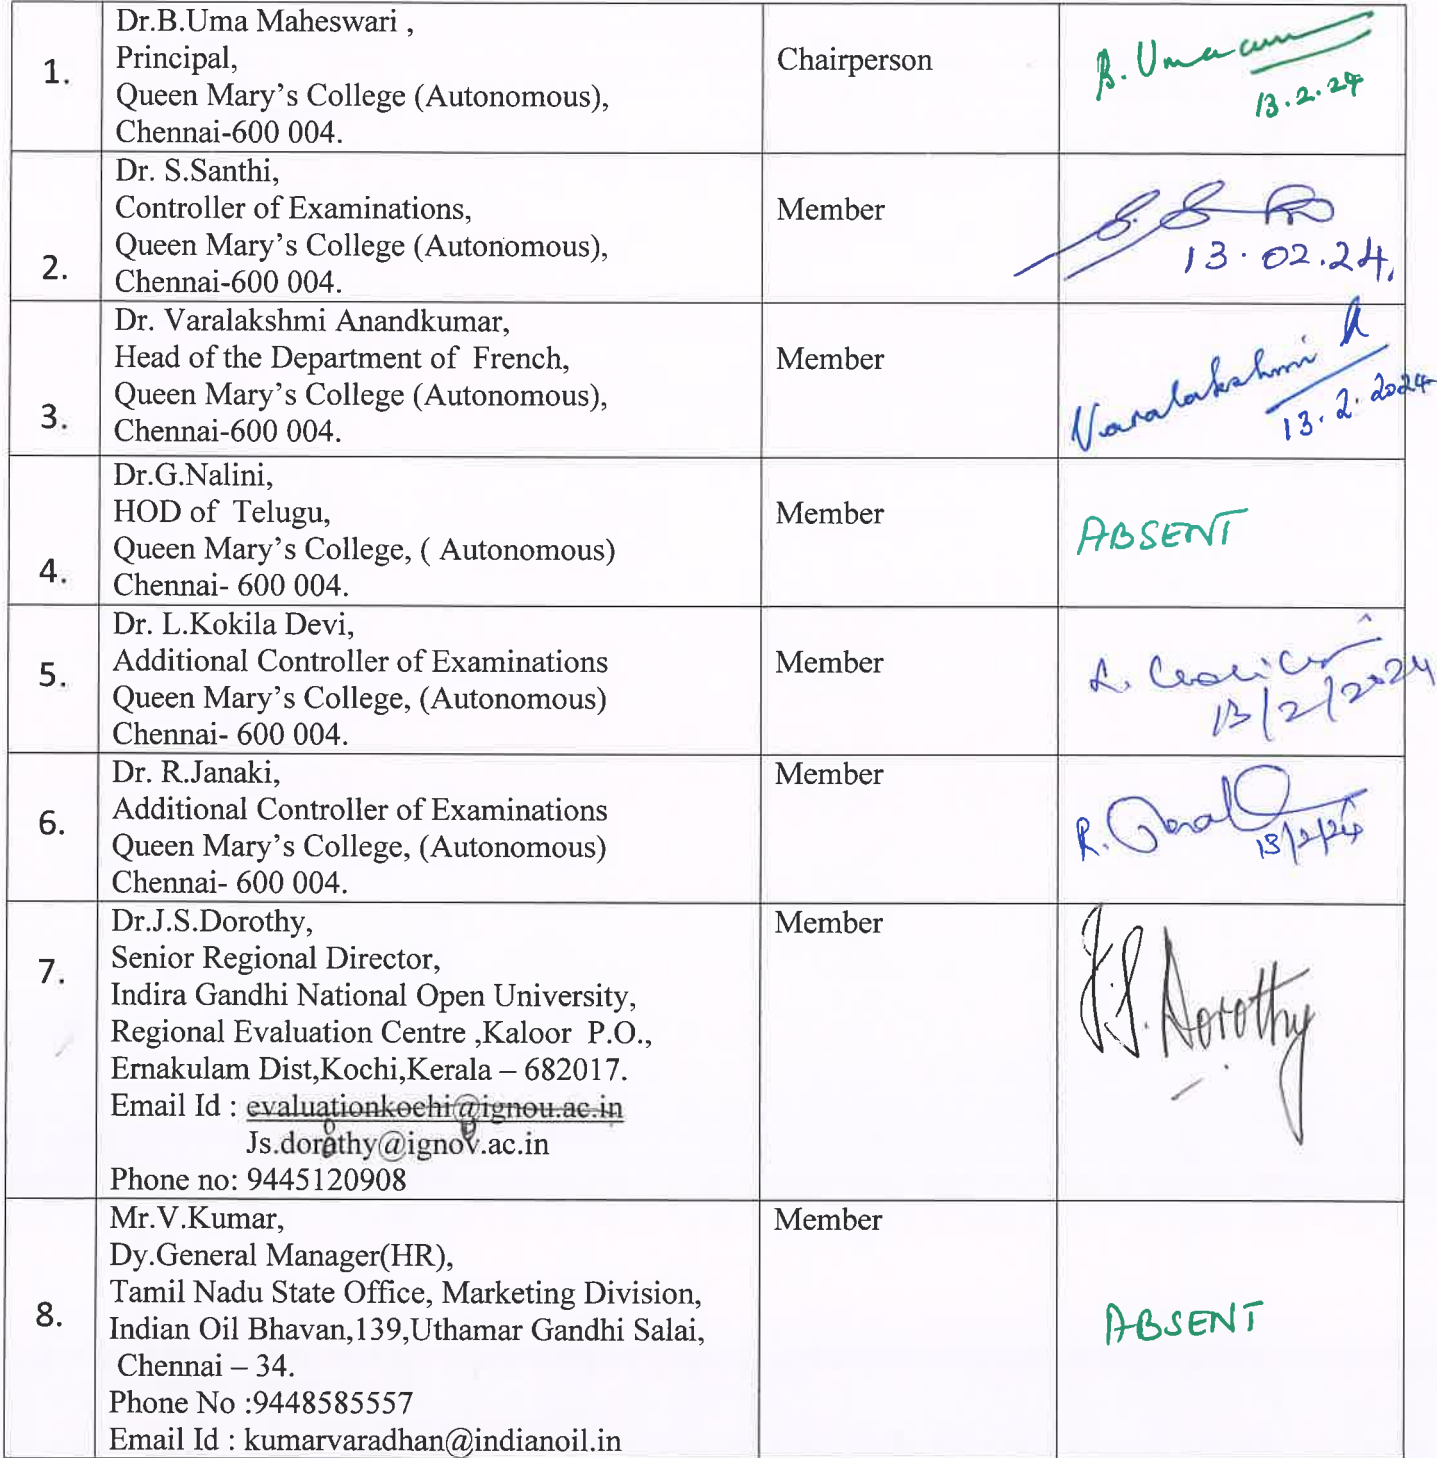 1.
Dr.B.Uma Maheswari ,
Principal,
Queen Mary's College (Autonomous),
Chennai-600 004.
Chairperson
B. Uma
13.2.24
2.
Dr. S.Santhi,
Controller of Examinations,
Queen Mary's College (Autonomous),
Chennai-600 004.
Member
13.02.24,
3.
Dr. Varalakshmi Anandkumar,
Head of the Department of French,
Queen Mary's College (Autonomous),
Chennai-600 004.
Member
Varalakshmi A
13.2.2024
4.
Dr.G.Nalini,
HOD of Telugu,
Queen Mary's College, ( Autonomous)
Chennai- 600 004.
Member
ABSENT
5.
Dr. L.Kokila Devi,
Additional Controller of Examinations
Queen Mary's College, (Autonomous)
Chennai- 600 004.
Member
13/2/2024
6.
Dr. R.Janaki,
Additional Controller of Examinations
Queen Mary's College, (Autonomous)
Chennai- 600 004.
Member
R.
13/2/24
7.
Dr.J.S.Dorothy,
Senior Regional Director,
Indira Gandhi National Open University,
Regional Evaluation Centre ,Kaloor P.O.,
Ernakulam Dist,Kochi,Kerala – 682017.
Email Id : evaluationkochi@ignou.ac.in
Js.dorothy@ignov.ac.in
Phone no: 9445120908
Member
J.S. Dorothy
8.
Mr.V.Kumar,
Dy.General Manager(HR),
Tamil Nadu State Office, Marketing Division,
Indian Oil Bhavan,139,Uthamar Gandhi Salai,
Chennai – 34.
Phone No :9448585557
Email Id : kumarvaradhan@indianoil.in
Member
ABSENT